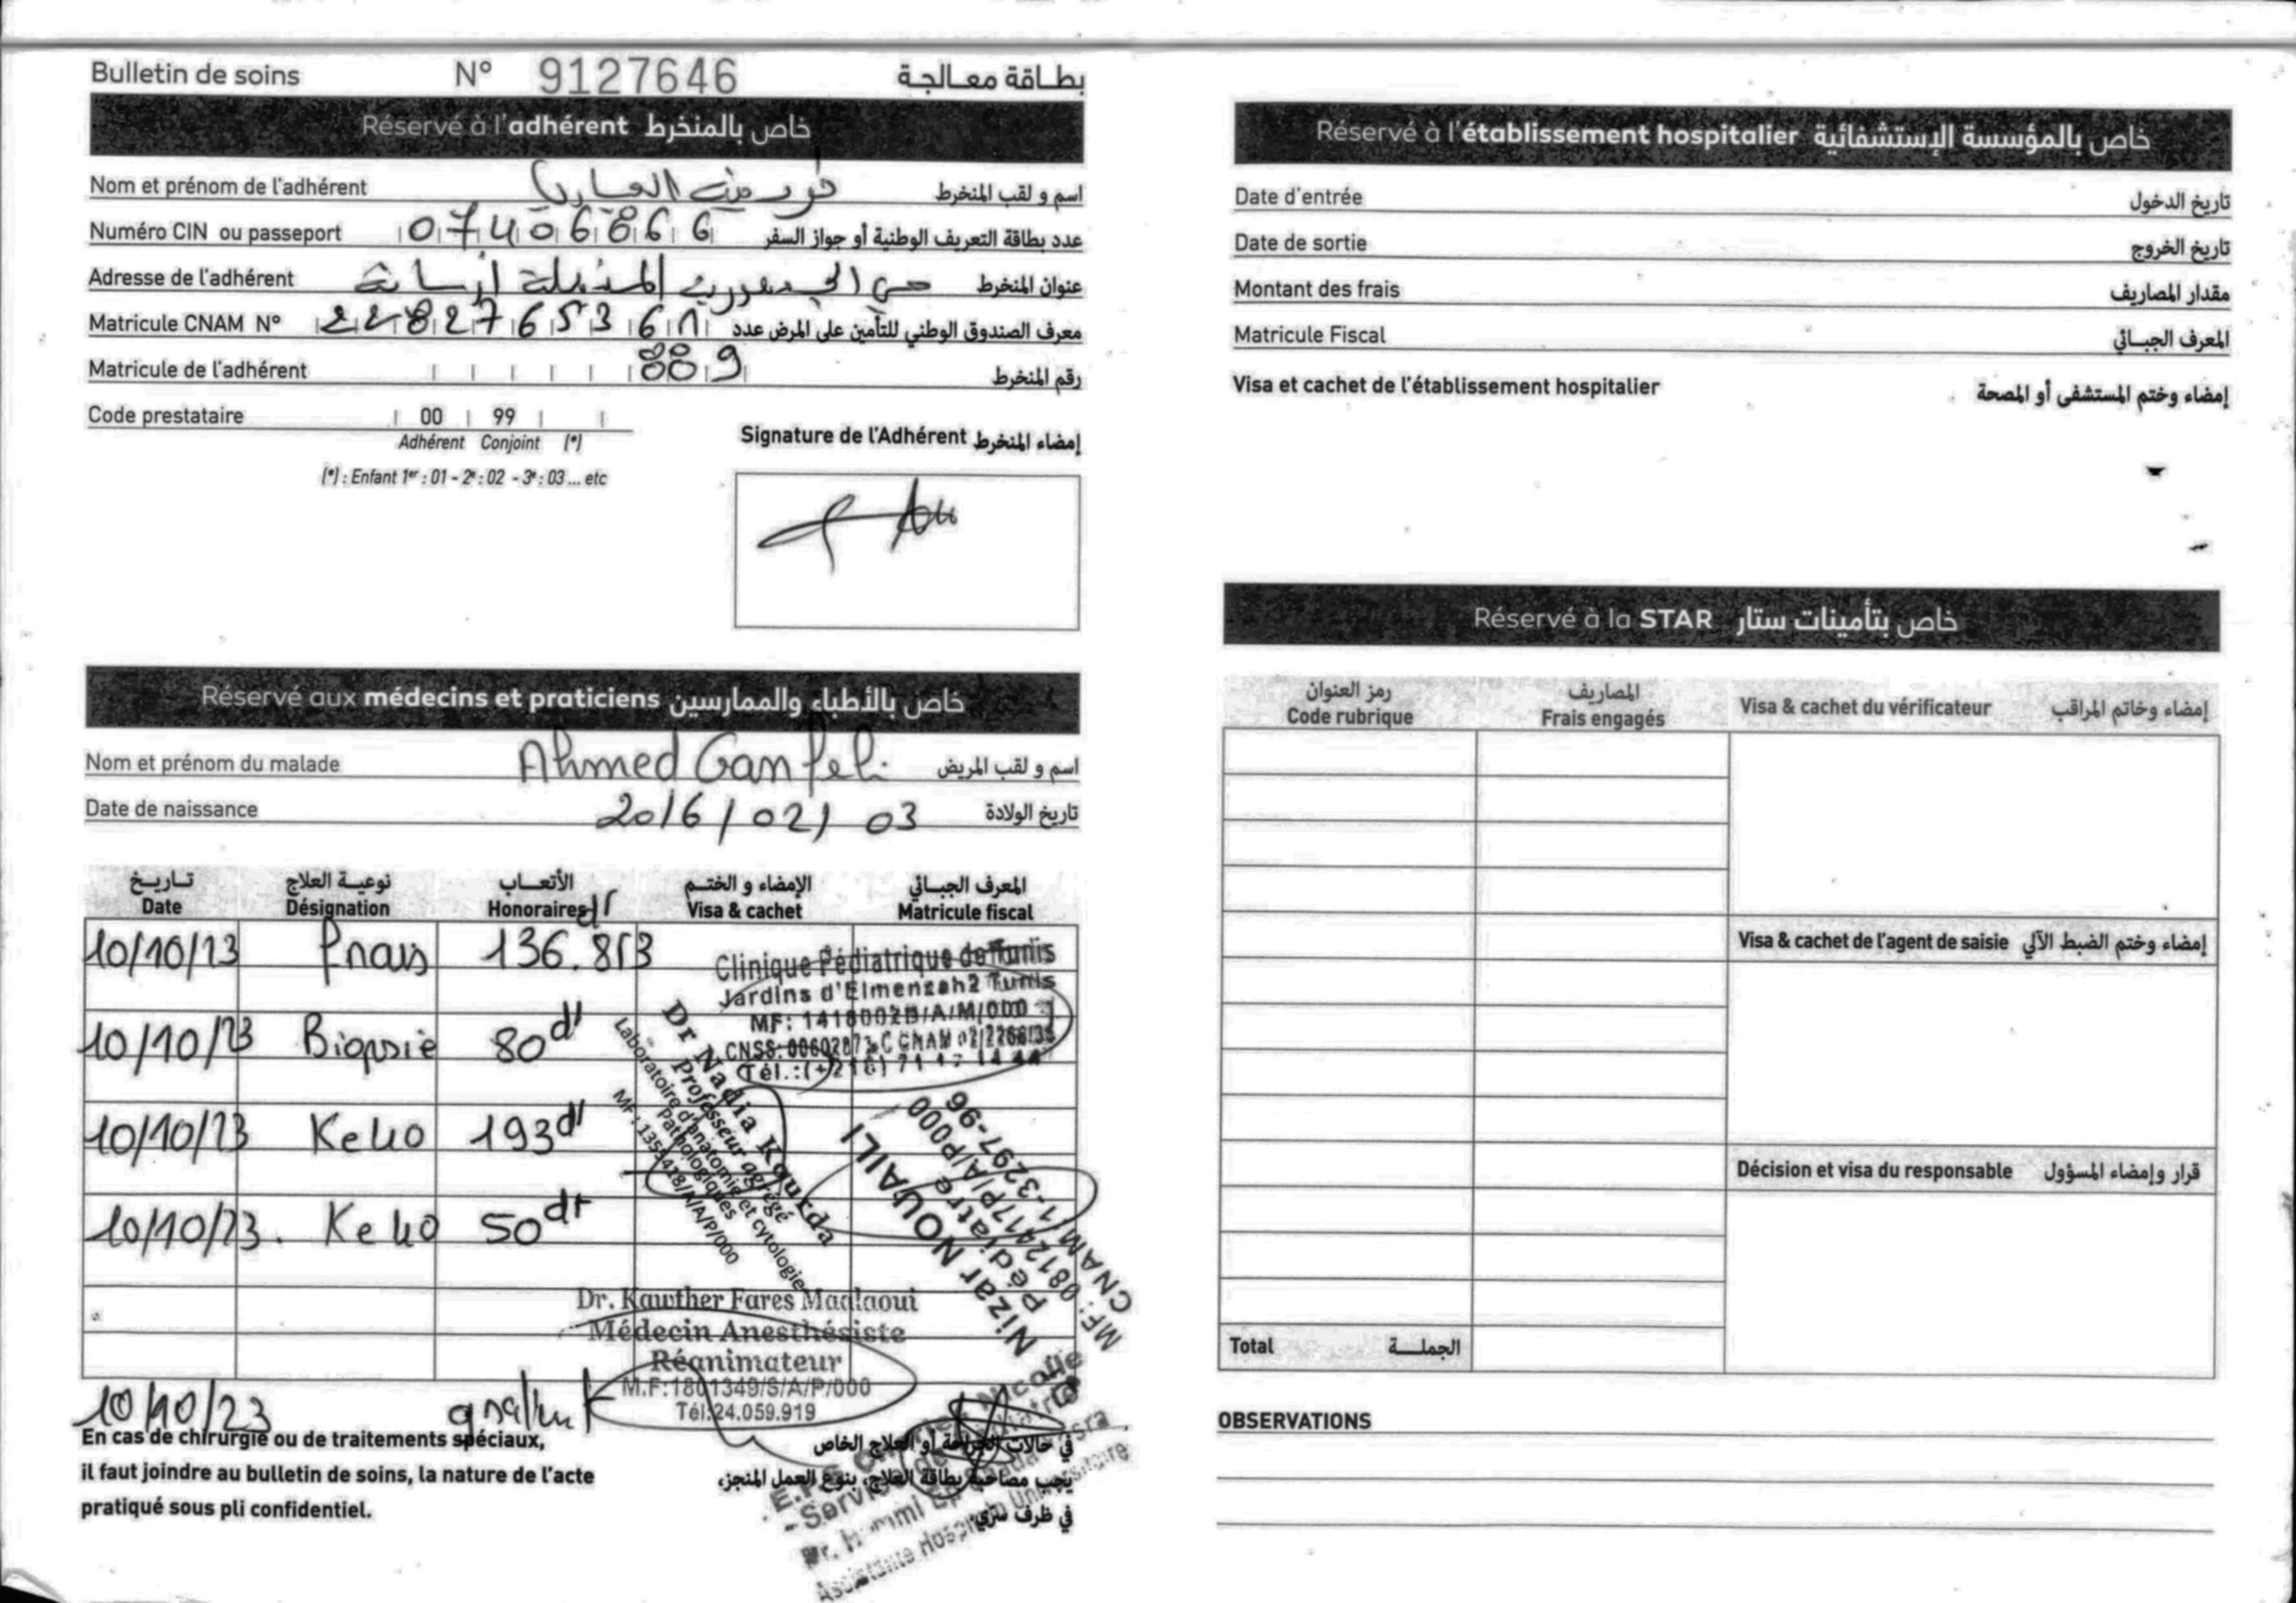 Bulletin de soins N° 9127646 بطاقة معالجة
Réservé à l'adhérent خاص بالمنخرط
Nom et prénom de l'adhérent اسم و لقب المنخرط
Numéro CIN ou passeport 07406866 عدد بطاقة التعريف الوطنية أو جواز السفر
Adresse de l'adhérent حي الجمهورية المنيهلة أريانة عنوان المنخرط
Matricule CNAM N° معرف الصندوق الوطني للتأمين على المرض عدد
Matricule de l'adhérent 889 رقم المنخرط
Code prestataire 00 99
Adhérent Conjoint (*)
(*) : Enfant 1er : 01 - 2e : 02 - 3e : 03 ... etc
Signature de l'Adhérent إمضاء المنخرط
Réservé aux médecins et praticiens خاص بالأطباء والممارسين
Nom et prénom du malade Ahmed اسم و لقب المريض
Date de naissance 2016/02/03 تاريخ الولادة
تاريخ نوعية العلاج الأتعاب الإمضاء و الختم المعرف الجبائي
Date Désignation Honoraires Visa & cachet Matricule fiscal
10/10/23 Frais 136.813
10/10/23 Biopsie 80dt
10/10/23 Ke40 193dt
10/10/23. Ke40 50dt
Clinique Pédiatrique de Tunis
Jardins d'Elmenzah2 Tunis
MF: 1418002B/A/M/000
Dr Nadia Kourda
Professeur agrégé
Laboratoire d'anatomie et cytologie
Pathologiques
MF : 1355418/N/A/P/000
Nizar NOUAILI
Pédiatre
MF: 0812417P/A/P000
CNAM 1-3297-96
Dr. Kawther Fares Maalaoui
Médecin Anesthésiste
Réanimateur
M.F:1801349/S/A/P/000
Tél:24.059.919
10/10/23
En cas de chirurgie ou de traitements spéciaux,
il faut joindre au bulletin de soins, la nature de l'acte
pratiqué sous pli confidentiel.
في حالات الجراحة أو العلاج الخاص
يجب مصاحبة بطاقة العلاج، بنوع العمل المنجز،
في ظرف سري
Réservé à l'établissement hospitalier خاص بالمؤسسة الإستشفائية
Date d'entrée تاريخ الدخول
Date de sortie تاريخ الخروج
Montant des frais مقدار المصاريف
Matricule Fiscal المعرف الجبائي
Visa et cachet de l'établissement hospitalier إمضاء وختم المستشفى أو المصحة
Réservé à la STAR خاص بتأمينات ستار
رمز العنوان المصاريف
Code rubrique Frais engagés Visa & cachet du vérificateur إمضاء وخاتم المراقب
Visa & cachet de l'agent de saisie إمضاء وختم الضبط الآلي
Décision et visa du responsable قرار وإمضاء المسؤول
Total الجملة
OBSERVATIONS